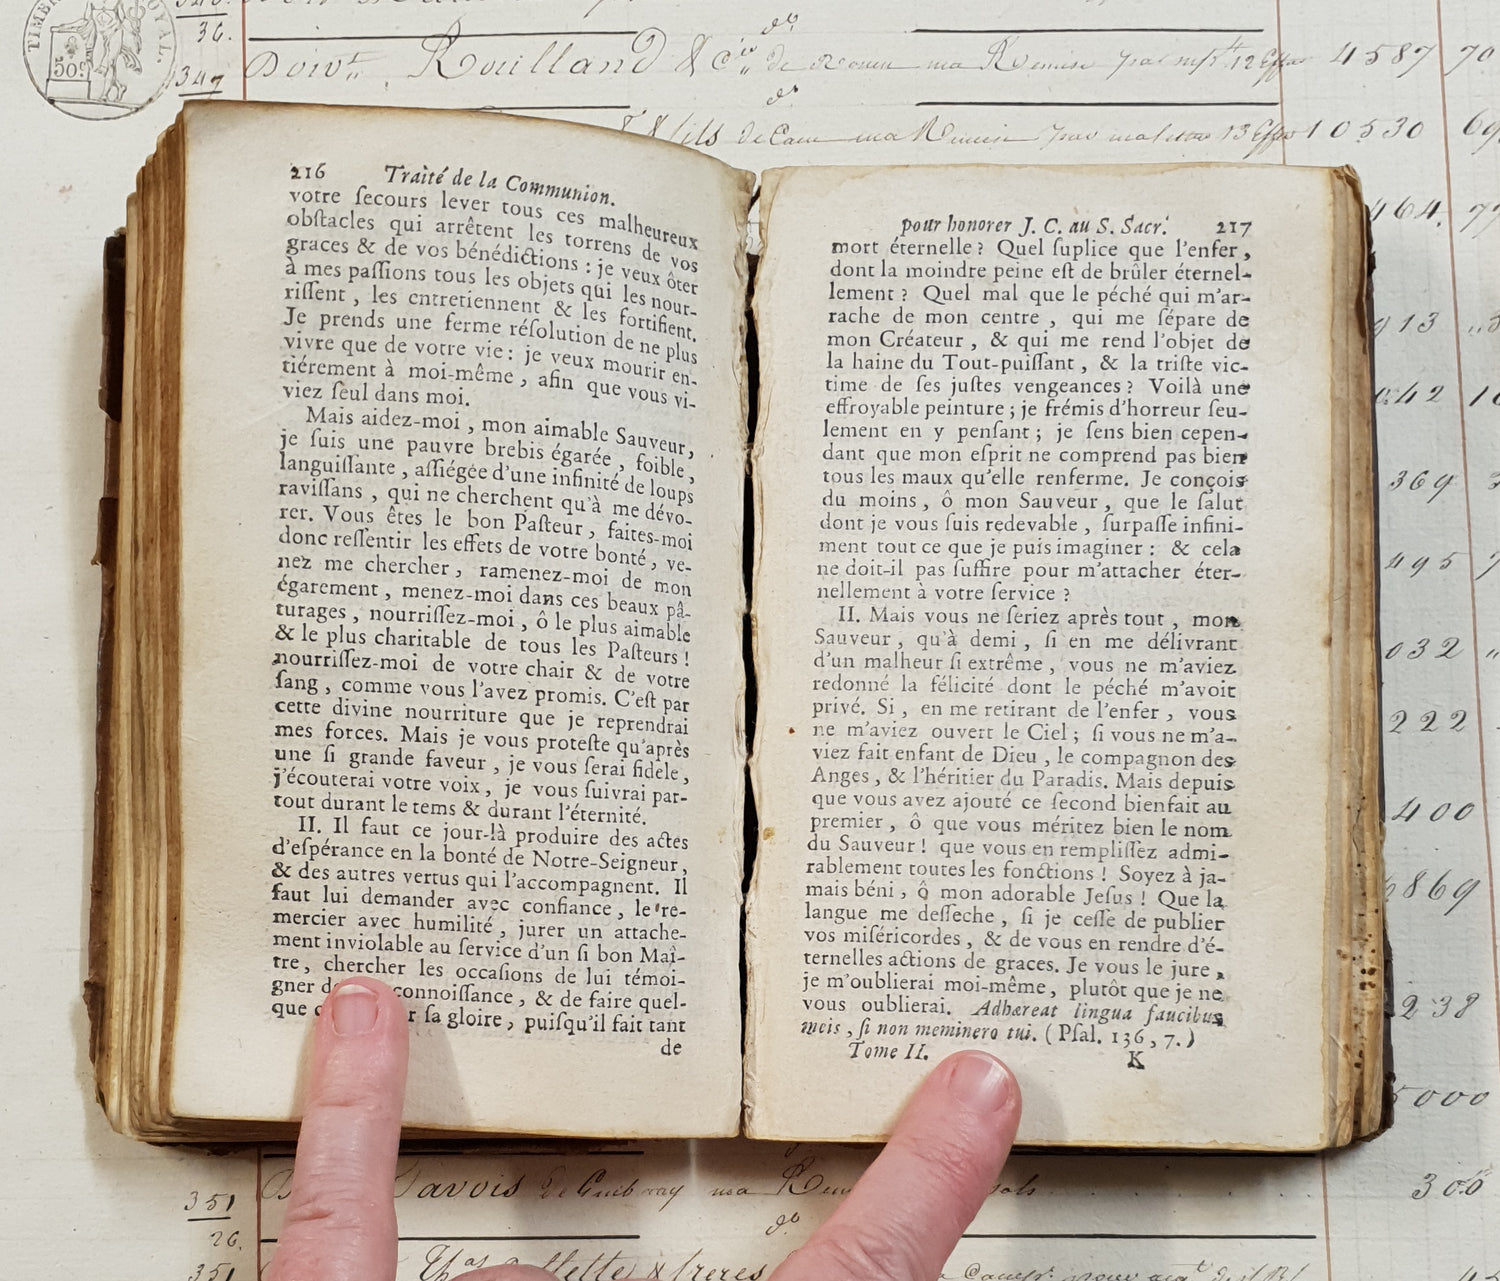 TIMBRE ROYAL.
50c
36.
347
Doivt. Rouilland & Cie. de Rouen ma Remise par 12 Effets 4587 70
do
& fils de Caen ma Remise par ma lettre 13 Effets 10530 69
216 Traité de la Communion.
votre ſecours lever tous ces malheureux
obſtacles qui arrêtent les torrens de vos
graces & de vos bénédictions : je veux ôter
à mes paſſions tous les objets qui les nour-
riſſent, les entretiennent & les fortifient.
Je prends une ferme réſolution de ne plus
vivre que de votre vie : je veux mourir en-
tiérement à moi-même, afin que vous vi-
viez ſeul dans moi.
Mais aidez-moi, mon aimable Sauveur,
je ſuis une pauvre brebis égarée, foible,
languiſſante, aſſiégée d'une infinité de loups
raviſſans, qui ne cherchent qu'à me dévo-
rer. Vous êtes le bon Paſteur, faites-moi
donc reſſentir les effets de votre bonté, ve-
nez me chercher, ramenez-moi de mon
égarement, menez-moi dans ces beaux pâ-
turages, nourriſſez-moi, ô le plus aimable
& le plus charitable de tous les Paſteurs !
nourriſſez-moi de votre chair & de votre
ſang, comme vous l'avez promis. C'eſt par
cette divine nourriture que je reprendrai
mes forces. Mais je vous proteſte qu'après
une ſi grande faveur, je vous ſerai fidele,
j'écouterai votre voix, je vous ſuivrai par-
tout durant le tems & durant l'éternité.
II. Il faut ce jour-là produire des actes
d'eſpérance en la bonté de Notre-Seigneur,
& des autres vertus qui l'accompagnent. Il
faut lui demander avec confiance, le re-
mercier avec humilité, jurer un attache-
ment inviolable au ſervice d'un ſi bon Maî-
tre, chercher les occaſions de lui témoi-
gner connoiſſance, & de faire quel-
que ſa gloire, puiſqu'il fait tant
de
pour honorer J. C. au S. Sacr. 217
mort éternelle ? Quel ſuplice que l'enfer,
dont la moindre peine eſt de brûler éternel-
lement ? Quel mal que le péché qui m'ar-
rache de mon centre, qui me ſépare de
mon Créateur, & qui me rend l'objet de
la haine du Tout-puiſſant, & la triſte vic-
time de ſes juſtes vengeances ? Voilà une
effroyable peinture ; je frémis d'horreur ſeu-
lement en y penſant ; je ſens bien cepen-
dant que mon eſprit ne comprend pas bien
tous les maux qu'elle renferme. Je conçois
du moins, ô mon Sauveur, que le ſalut
dont je vous ſuis redevable, ſurpaſſe infini-
ment tout ce que je puis imaginer : & cela
ne doit-il pas ſuffire pour m'attacher éter-
nellement à votre ſervice ?
II. Mais vous ne ſeriez après tout, mon
Sauveur, qu'à demi, ſi en me délivrant
d'un malheur ſi extrême, vous ne m'aviez
redonné la félicité dont le péché m'avoit
privé. Si, en me retirant de l'enfer, vous
ne m'aviez ouvert le Ciel ; ſi vous ne m'a-
viez fait enfant de Dieu, le compagnon des
Anges, & l'héritier du Paradis. Mais depuis
que vous avez ajouté ce ſecond bienfait au
premier, ô que vous méritez bien le nom
du Sauveur ! que vous en rempliſſez admi-
rablement toutes les fonctions ! Soyez à ja-
mais béni, ô mon adorable Jeſus ! Que la
langue me deſſeche, ſi je ceſſe de publier
vos miſéricordes, & de vous en rendre d'é-
ternelles actions de graces. Je vous le jure,
je m'oublierai moi-même, plutôt que je ne
vous oublierai. Adhæreat lingua faucibus
meis, ſi non meminero tui. (Pſal. 136, 7.)
Tome II. K
464. 77
013
042
369
495
032
222
400
869
238
5000
351 Savois ma 300
26.
do
351 & freres